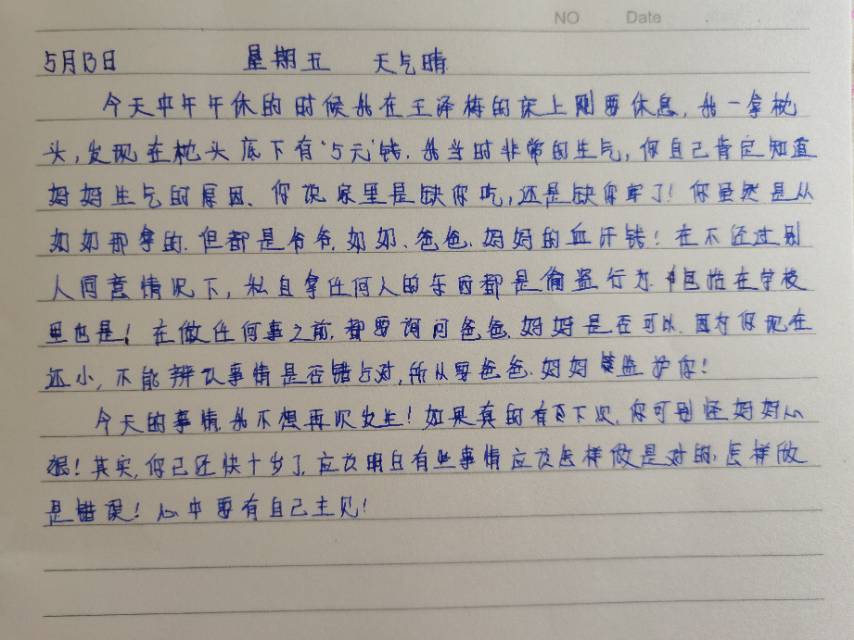 NO Date
5月13日 星期五 天气晴
今天中午午休的时候我在王泽梅的床上刚要休息,我一拿枕
头,发现在枕头底下有"5元"钱.我当时非常的生气,你自己肯定知道
妈妈生气的原因、你说家里是缺你吃,还是缺你穿了!你虽然是从
奶奶那拿的.但都是爷爷.奶奶.爸爸.妈妈的血汗钱!在不经过别
人同意情况下,私自拿任何人的东西都是偷盗行为.包括在学校
里也是!在做任何事之前.都要询问爸爸.妈妈是否可以.因为你现在
还小,不能辨认事情是否错与对,所以要爸爸.妈妈监护你!
今天的事情我不想再次发生!如果真的有下次.你可别怪妈妈心
狠!其实,你已经快十岁了.应该明白有些事情应该怎样做是对的.怎样做
是错误!心中要有自己主见!